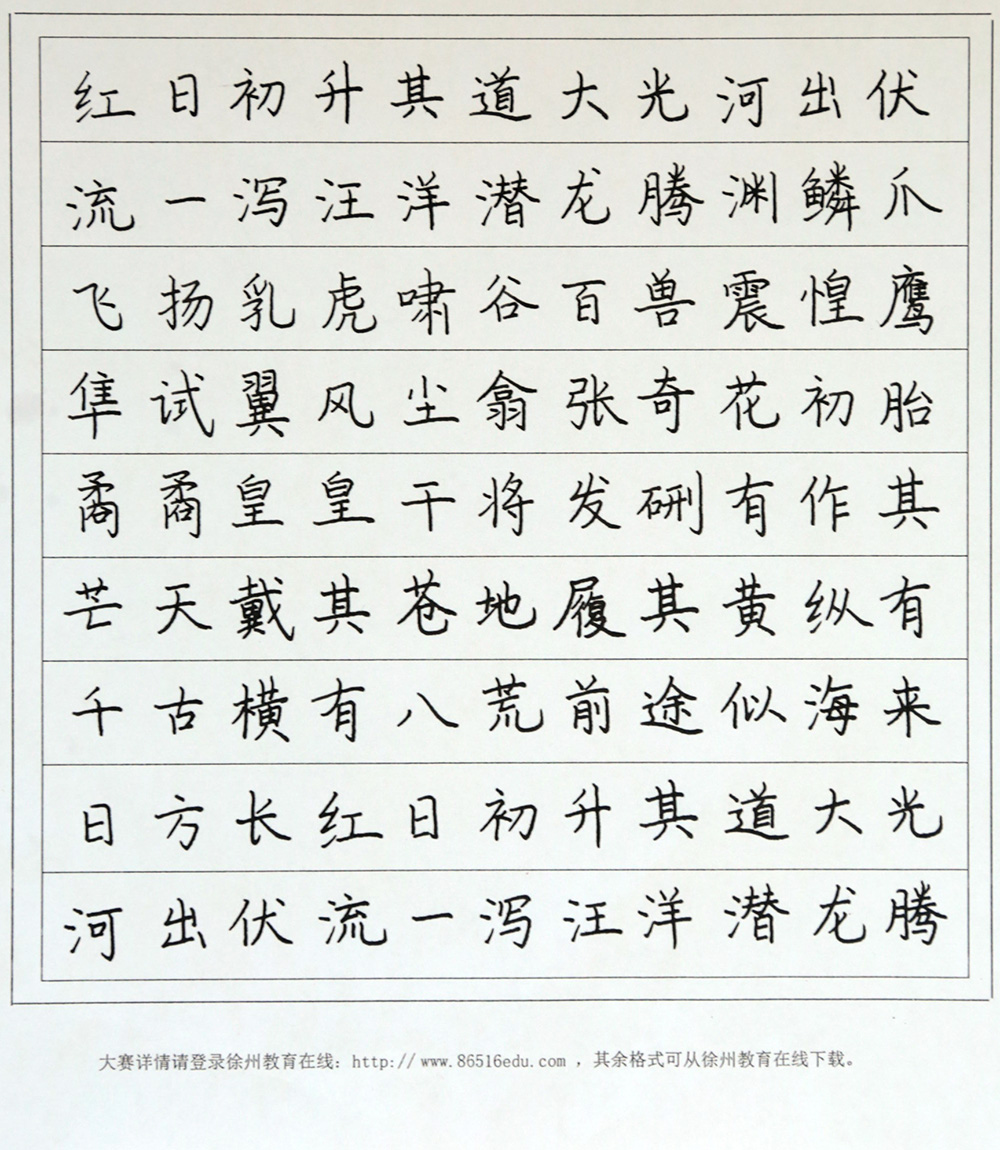 红日初升其道大光河出伏
流一泻汪洋潜龙腾渊鳞爪
飞扬乳虎啸谷百兽震惶鹰
隼试翼风尘翕张奇花初胎
矞矞皇皇干将发硎有作其
芒天戴其苍地履其黄纵有
千古横有八荒前途似海来
日方长红日初升其道大光
河出伏流一泻汪洋潜龙腾
大赛详情请登录徐州教育在线：http://www.86516edu.com ，其余格式可从徐州教育在线下载。